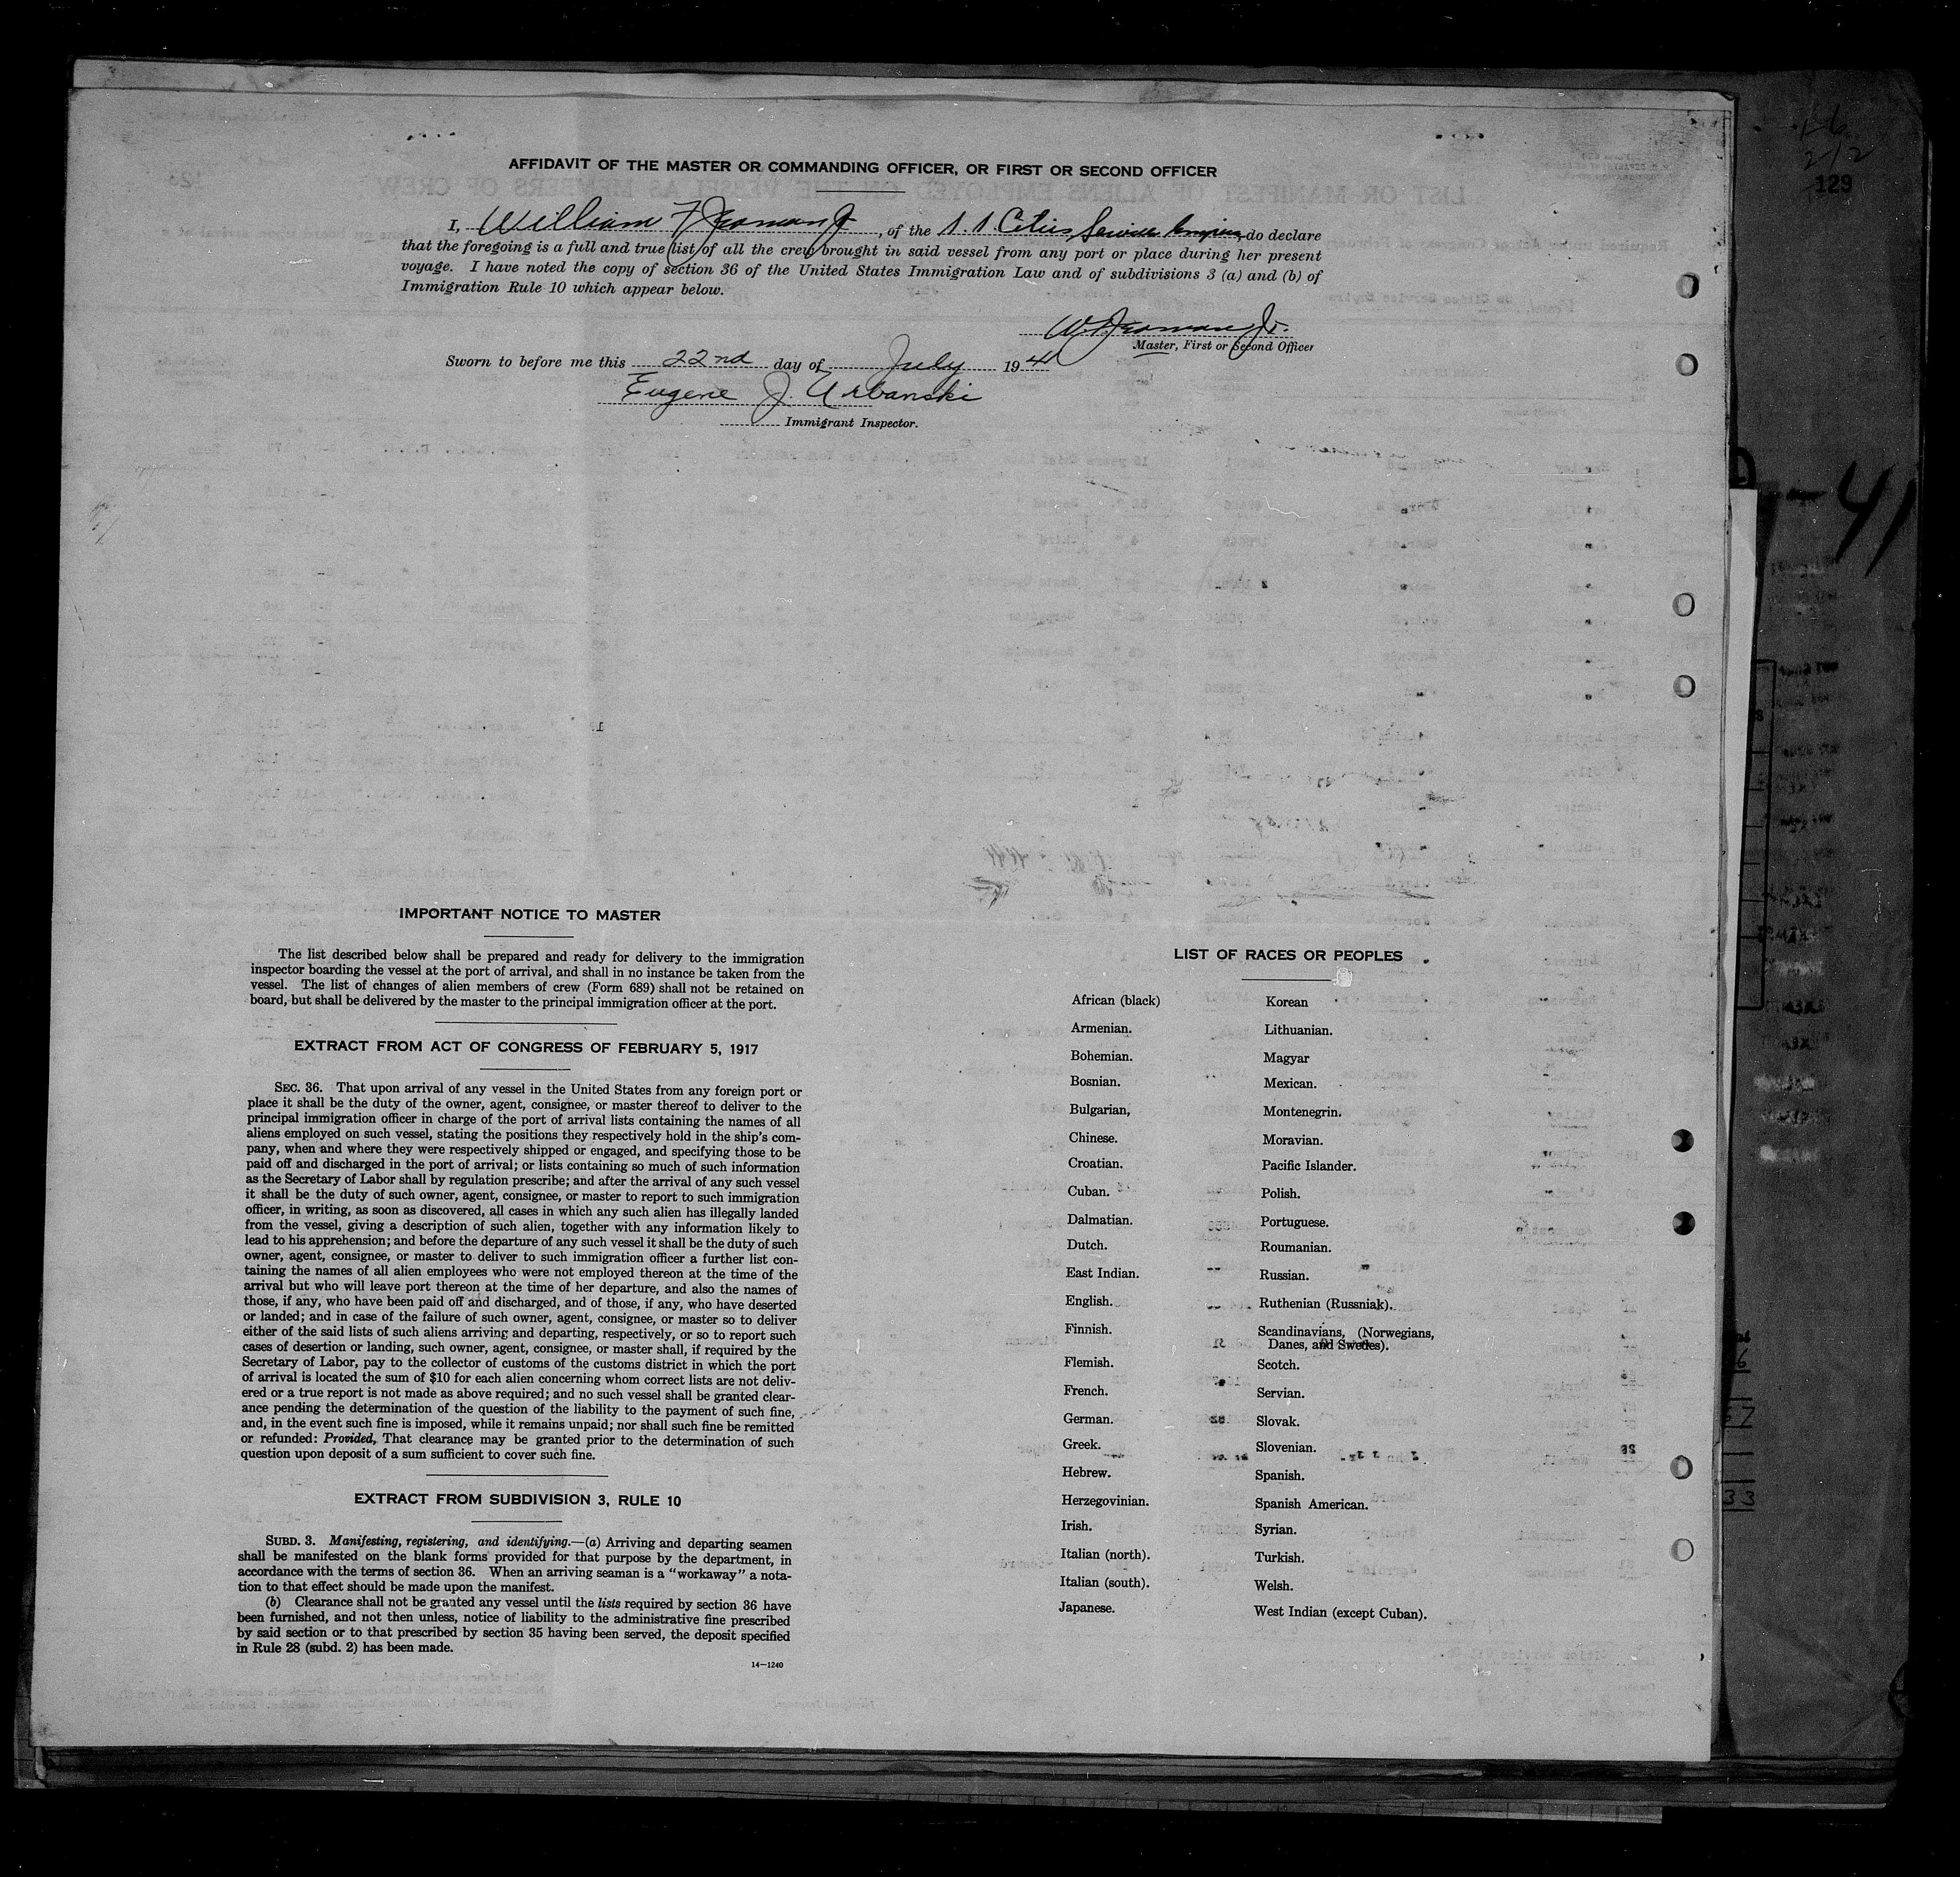 1-6
2-12
129
AFFIDAVIT OF THE MASTER OR COMMANDING OFFICER, OR FIRST OR SECOND OFFICER
I, William F Jerman Jr, of the S. S. Cities Service Empire, do declare
that the foregoing is a full and true list of all the crew brought in said vessel from any port or place during her present
voyage. I have noted the copy of section 36 of the United States Immigration Law and of subdivisions 3 (a) and (b) of
Immigration Rule 10 which appear below.
Master, First or Second Officer
Sworn to before me this 22nd day of July 1941
Eugene J. Urbanski
Immigrant Inspector.
-41
IMPORTANT NOTICE TO MASTER
The list described below shall be prepared and ready for delivery to the immigration
inspector boarding the vessel at the port of arrival, and shall in no instance be taken from the
vessel. The list of changes of alien members of crew (Form 689) shall not be retained on
board, but shall be delivered by the master to the principal immigration officer at the port.
EXTRACT FROM ACT OF CONGRESS OF FEBRUARY 5, 1917
SEC. 36. That upon arrival of any vessel in the United States from any foreign port or
place it shall be the duty of the owner, agent, consignee, or master thereof to deliver to the
principal immigration officer in charge of the port of arrival lists containing the names of all
aliens employed on such vessel, stating the positions they respectively hold in the ship's com-
pany, when and where they were respectively shipped or engaged, and specifying those to be
paid off and discharged in the port of arrival; or lists containing so much of such information
as the Secretary of Labor shall by regulation prescribe; and after the arrival of any such vessel
it shall be the duty of such owner, agent, consignee, or master to report to such immigration
officer, in writing, as soon as discovered, all cases in which any such alien has illegally landed
from the vessel, giving a description of such alien, together with any information likely to
lead to his apprehension; and before the departure of any such vessel it shall be the duty of such
owner, agent, consignee, or master to deliver to such immigration officer a further list con-
taining the names of all alien employees who were not employed thereon at the time of the
arrival but who will leave port thereon at the time of her departure, and also the names of
those, if any, who have been paid off and discharged, and of those, if any, who have deserted
or landed; and in case of the failure of such owner, agent, consignee, or master so to deliver
either of the said lists of such aliens arriving and departing, respectively, or so to report such
cases of desertion or landing, such owner, agent, consignee, or master shall, if required by the
Secretary of Labor, pay to the collector of customs of the customs district in which the port
of arrival is located the sum of $10 for each alien concerning whom correct lists are not deliv-
ered or a true report is not made as above required; and no such vessel shall be granted clear-
ance pending the determination of the question of the liability to the payment of such fine,
and, in the event such fine is imposed, while it remains unpaid; nor shall such fine be remitted
or refunded: Provided, That clearance may be granted prior to the determination of such
question upon deposit of a sum sufficient to cover such fine.
EXTRACT FROM SUBDIVISION 3, RULE 10
SUBD. 3. Manifesting, registering, and identifying.—(a) Arriving and departing seamen
shall be manifested on the blank forms provided for that purpose by the department, in
accordance with the terms of section 36. When an arriving seaman is a "workaway" a nota-
tion to that effect should be made upon the manifest.
(b) Clearance shall not be granted any vessel until the lists required by section 36 have
been furnished, and not then unless, notice of liability to the administrative fine prescribed
by said section or to that prescribed by section 35 having been served, the deposit specified
in Rule 28 (subd. 2) has been made.
14—1240
LIST OF RACES OR PEOPLES
African (black)
Armenian.
Bohemian.
Bosnian.
Bulgarian,
Chinese.
Croatian.
Cuban.
Dalmatian.
Dutch.
East Indian.
English.
Finnish.
Flemish.
French.
German.
Greek.
Hebrew.
Herzegovinian.
Irish.
Italian (north).
Italian (south).
Japanese.
Korean
Lithuanian.
Magyar
Mexican.
Montenegrin.
Moravian.
Pacific Islander.
Polish.
Portuguese.
Roumanian.
Russian.
Ruthenian (Russniak).
Scandinavians, (Norwegians,
Danes, and Swedes).
Scotch.
Servian.
Slovak.
Slovenian.
Spanish.
Spanish American.
Syrian.
Turkish.
Welsh.
West Indian (except Cuban).